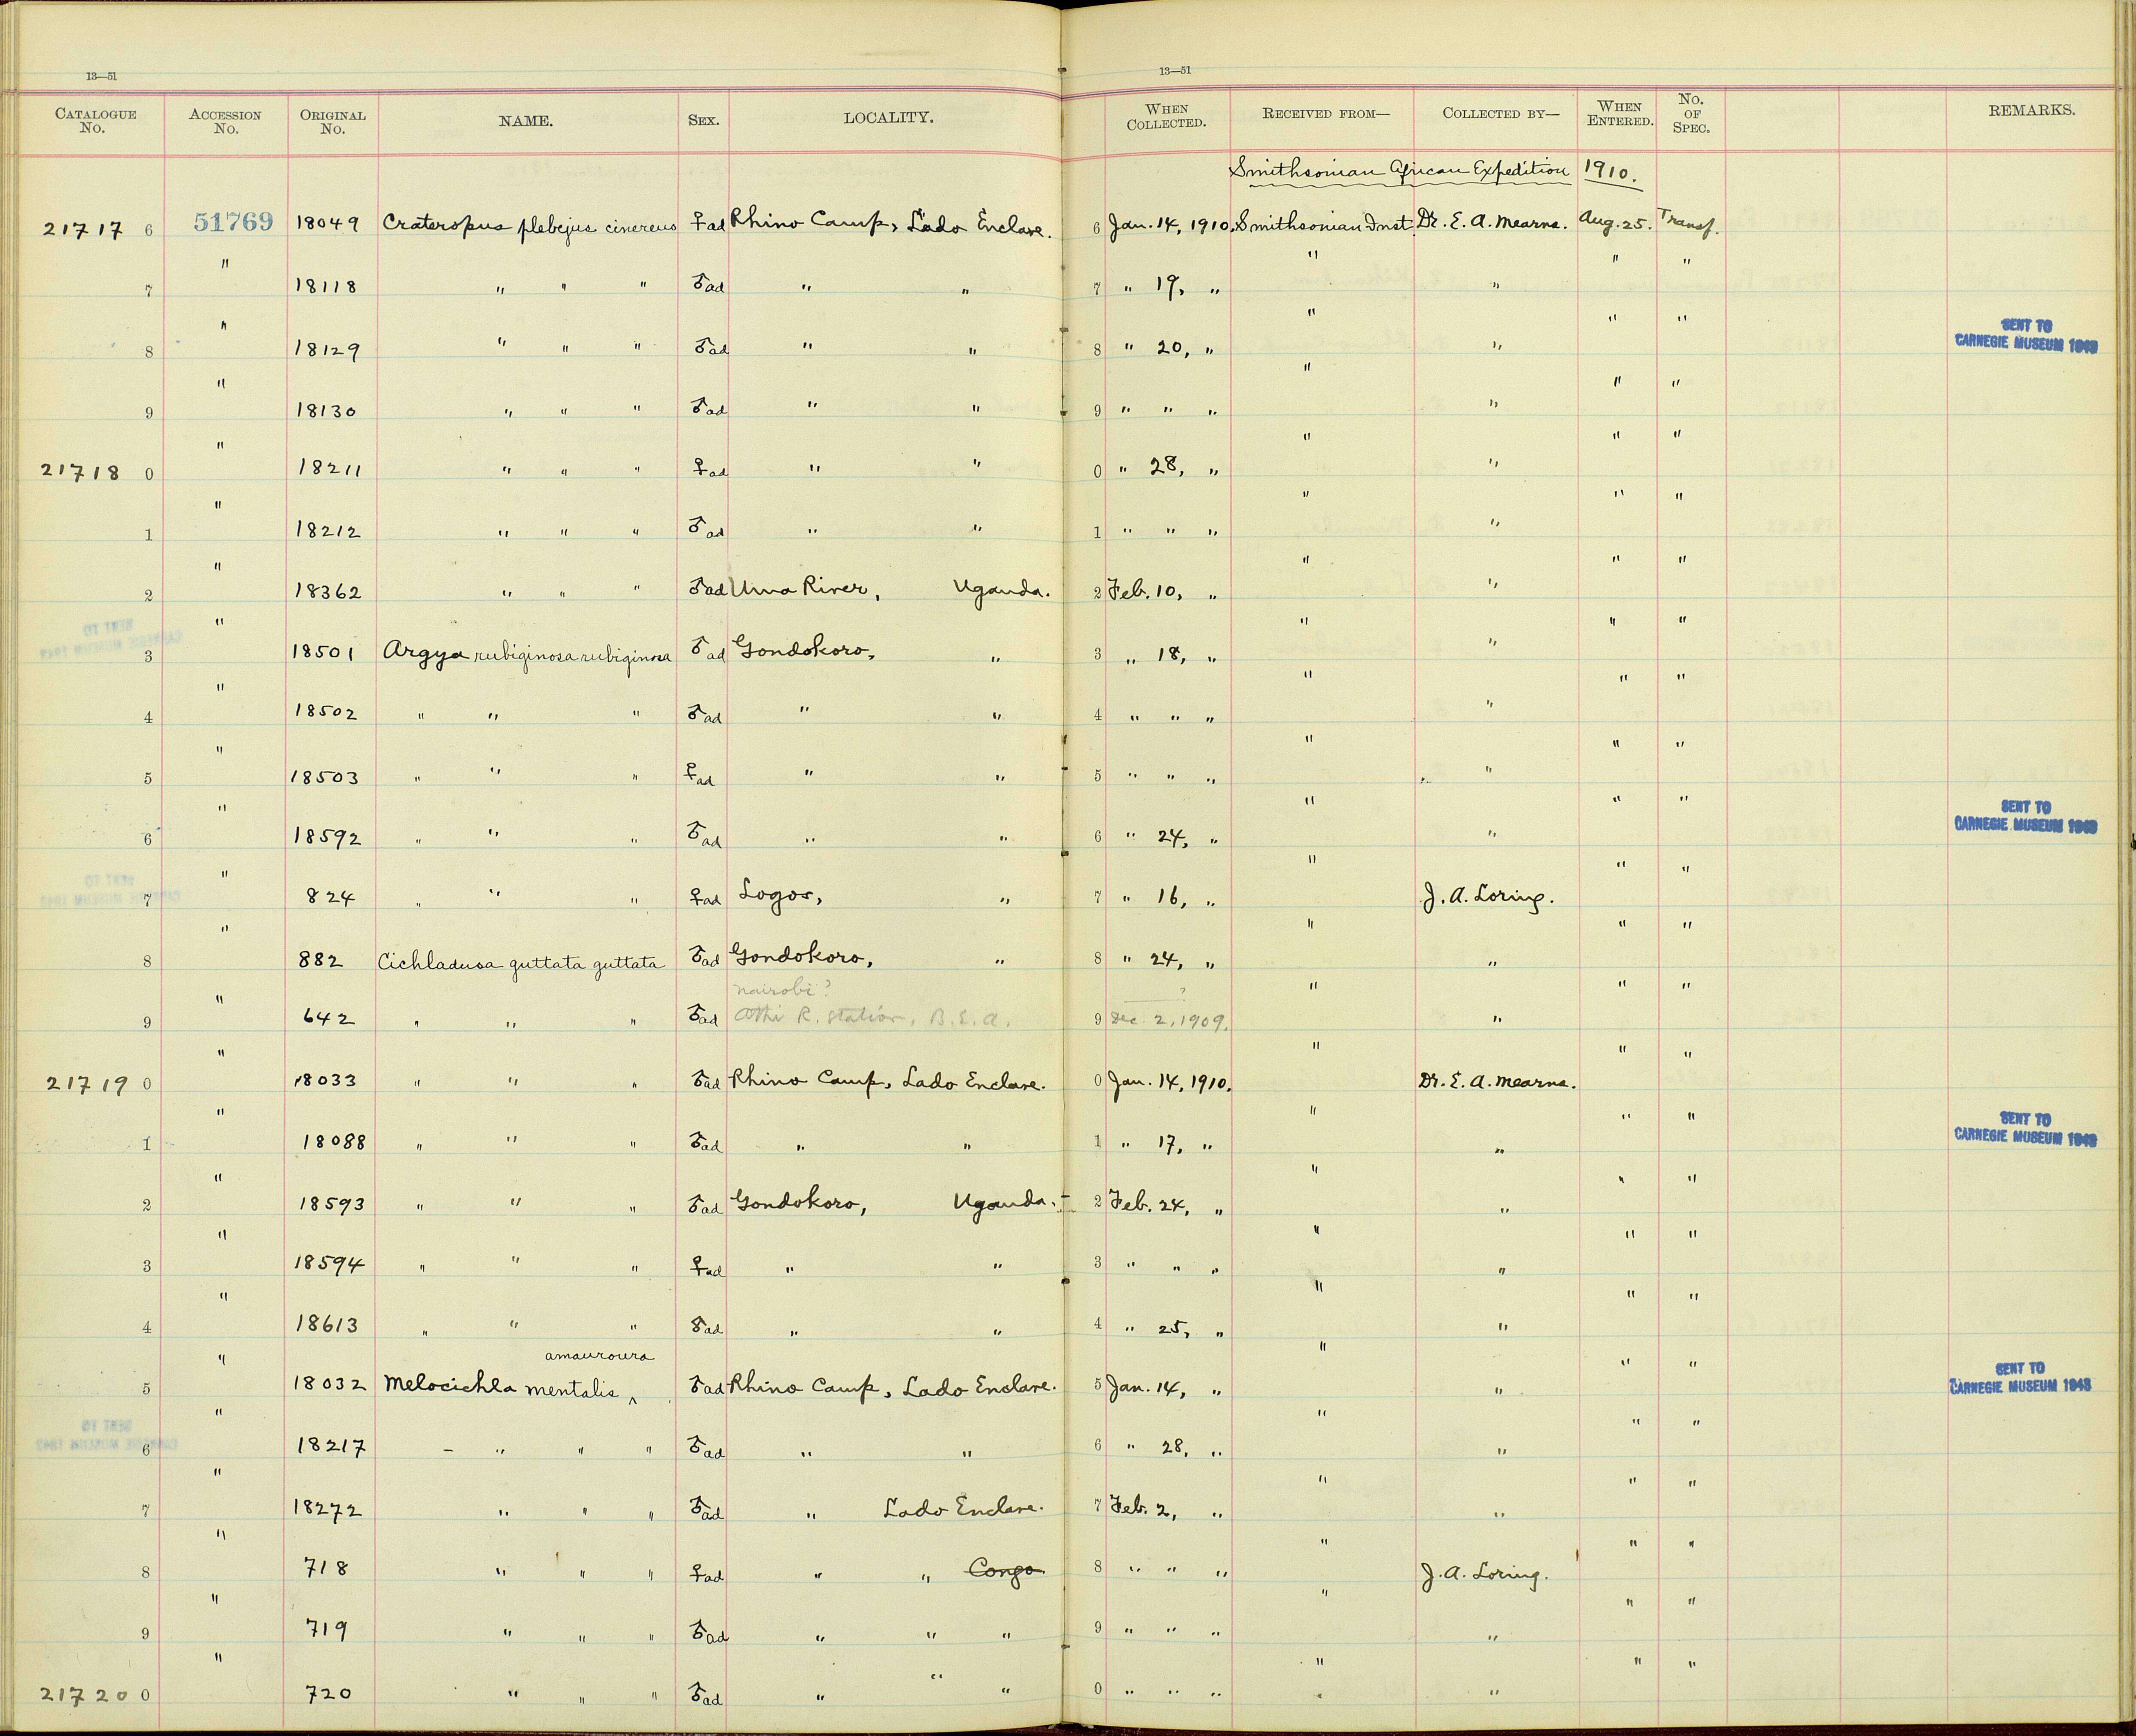 13—51 13—51
CATALOGUE No. ACCESSION No. ORIGINAL No. NAME. SEX. LOCALITY. WHEN COLLECTED. RECEIVED FROM— COLLECTED BY— WHEN ENTERED. No. OF SPEC. REMARKS.
Smithsonian African Expedition 1910.
21717 6 51769 18049 Crateropus plebejus cinereus ♀ad Rhino Camp, Lado Enclave. 6 Jan. 14, 1910. Smithsonian Inst. Dr. E. A. Mearns. Aug. 25. Transf.
7 " 18118 " " " ♂ad " " 7 " 19, " " " " "
8 " 18129 " " " ♂ad " " 8 " 20, " " " " " SENT TO CARNEGIE MUSEUM 1943
9 " 18130 " " " ♂ad " " 9 " " " " " " "
21718 0 " 18211 " " " ♀ad " " 0 " 28, " " " " "
1 " 18212 " " " ♂ad " " 1 " " " " " " "
2 " 18362 " " " ♂ad Uma River, Uganda. 2 Feb. 10, " " " " "
3 " 18501 Argya rubiginosa rubiginosa ♂ad Gondokoro, " 3 " 18, " " " " "
4 " 18502 " " " ♂ad " " 4 " " " " " " "
5 " 18503 " " " ♀ad " " 5 " " " " " " "
6 " 18592 " " " ♂ad " " 6 " 24, " " " " " SENT TO CARNEGIE MUSEUM 1943
7 " 824 " " " ♀ad Logos, " 7 " 16, " " J. A. Loring. " "
8 " 882 Cichladusa guttata guttata ♂ad Gondokoro, " 8 " 24, " " " " "
nairobi? ?
9 " 642 " " " ♂ad Athi R. Station, B.E.A. 9 Dec. 2, 1909. " " " "
21719 0 " 18033 " " " ♂ad Rhino Camp, Lado Enclave. 0 Jan. 14, 1910. " Dr. E. A. Mearns. " "
1 " 18088 " " " ♂ad " " 1 " 17, " " " " " SENT TO CARNEGIE MUSEUM 1943
2 " 18593 " " " ♂ad Gondokoro, Uganda. 2 Feb. 24, " " " " "
3 " 18594 " " " ♀ad " " 3 " " " " " " "
4 " 18613 " " " ♂ad " " 4 " 25, " " " " "
amauroura
5 " 18032 Melocichla mentalis ^ ♂ad Rhino Camp, Lado Enclave. 5 Jan. 14, " " " " " SENT TO CARNEGIE MUSEUM 1943
6 " 18217 – " " " ♂ad " " 6 " 28, " " " " "
7 " 18272 " " " ♂ad " Lado Enclave. 7 Feb. 2, " " " " "
8 " 718 " " " ♀ad " " Congo. 8 " " " " J. A. Loring. " "
9 " 719 " " " ♂ad " " " 9 " " " " " " "
21720 0 " 720 " " " ♂ad " " " 0 " " " " " " "